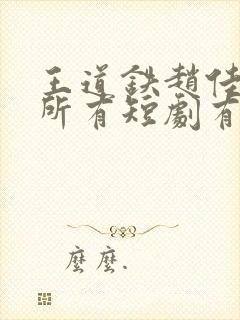 王道鉄趙佳
所有短劇有
麼麼.